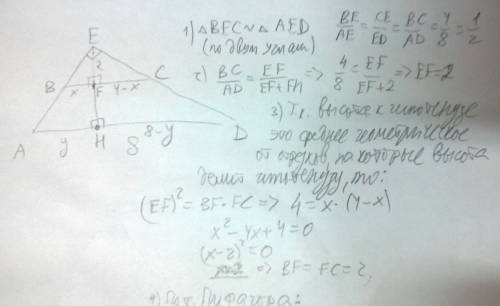 E
2
B x F 4-x C
A y H 8 8-y D
1) △BEC ~ △AED
(по двум углам)
BE/AE = CE/ED = BC/AD = 4/8 = 1/2
2) BC/AD = EF/EF+FH => 4/8 = EF/EF+2 => EF=2
3) Т.к. высота к гипотенузе
это среднее геометрическое
от отрезков, на которые высота
делит гипотенузу, то:
(EF)² = BF · FC => 4 = x · (4-x)
x² - 4x + 4 = 0
(x-2)² = 0
=> BF = FC = 2,
4) По т. Пифагора: